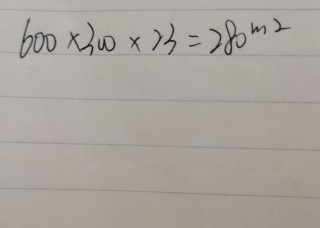 600 × 300 × 23 = 280m2